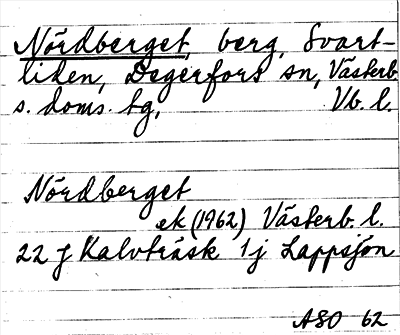 Nordberget, berg, Svart-
liden, Degerfors sn, Västerb.
s. doms. tg, Vb. l.
Nordberget
ek (1962) Västerb. l.
22 f Kalvträsk 1 j Lappsjön
ASO 62